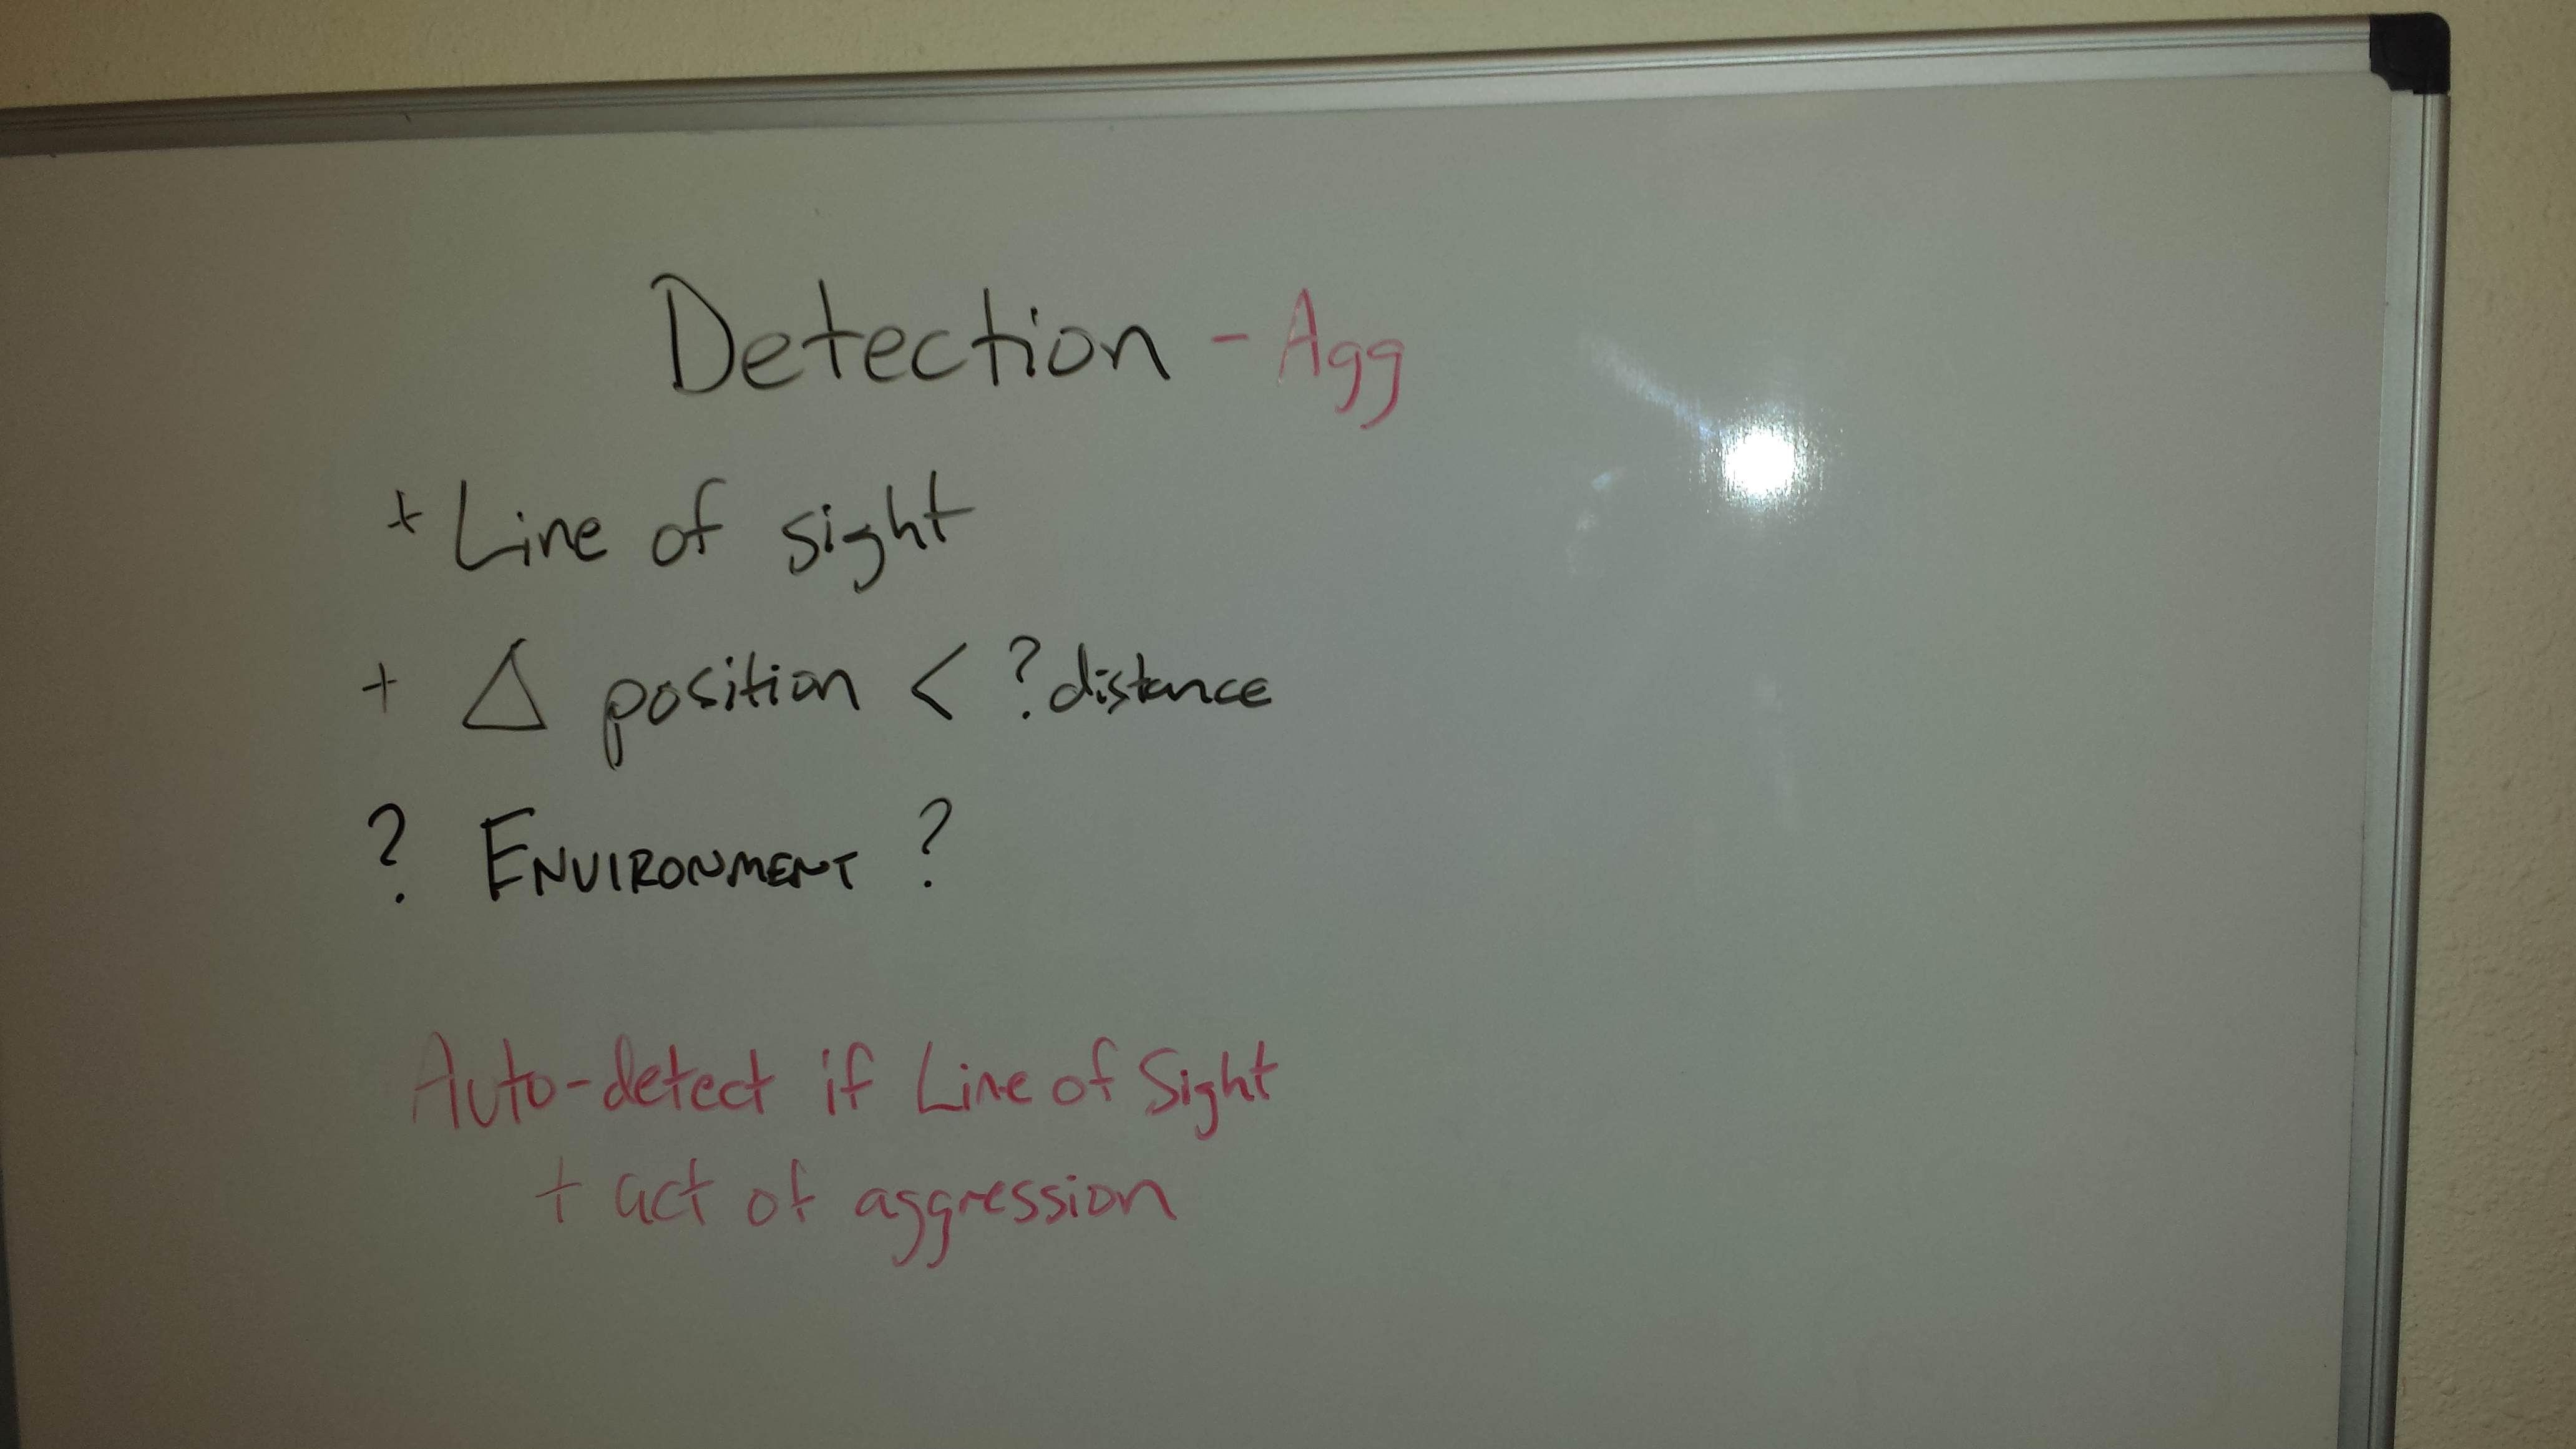 Detection - Agg
+ Line of sight
+ Δ position < ? distance
? ENVIRONMENT ?
Auto-detect if Line of Sight
+ act of aggression